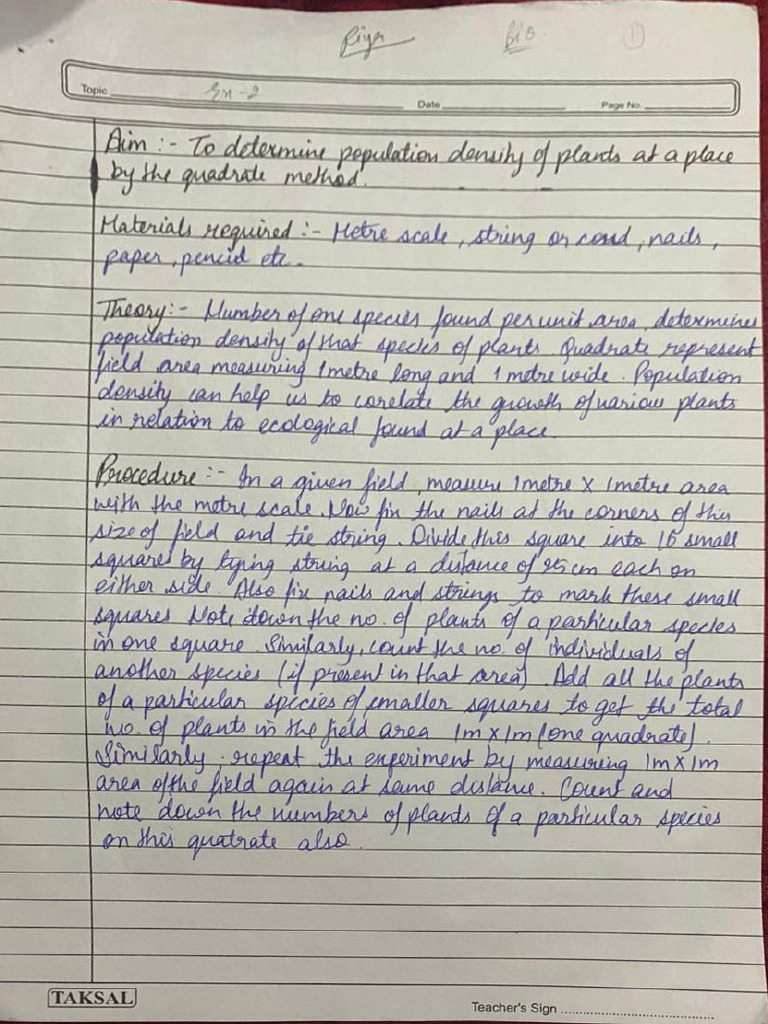 Riya
Bio
1
Topic Ex-2
Date
Page No.
Aim :- To determine population density of plants at a place
by the quadrate method.
Materials required :- Metre scale, string or cord, nails,
paper, pencid etc.
Theory:- Number of one species found per unit area, determines
population density of that species of plants. Quadrate represent
field area measuring 1 metre long and 1 metre wide. Population
density can help us to corelate the growth of various plants
in relation to ecological found at a place.
Procedure :- In a given field, measure 1metre X 1metre area
with the metre scale. Now fix the nails at the corners of this
size of field and tie string. Divide this square into 16 small
squares by tying string at a distance of 25 cm each on
either side. Also fix nails and strings to mark these small
squares Note down the no. of plants of a particular species
in one square. Similarly, count the no. of individuals of
another species (if present in that area). Add all the plants
of a particular species of smaller squares to get the total
no. of plants in the field area 1m X 1m (one quadrate).
Similarly, repeat the experiment by measuring 1m X 1m
area of the field again at same distance. Count and
note down the numbers of plants of a particular species
on this quatrate also.
TAKSAL
Teacher's Sign